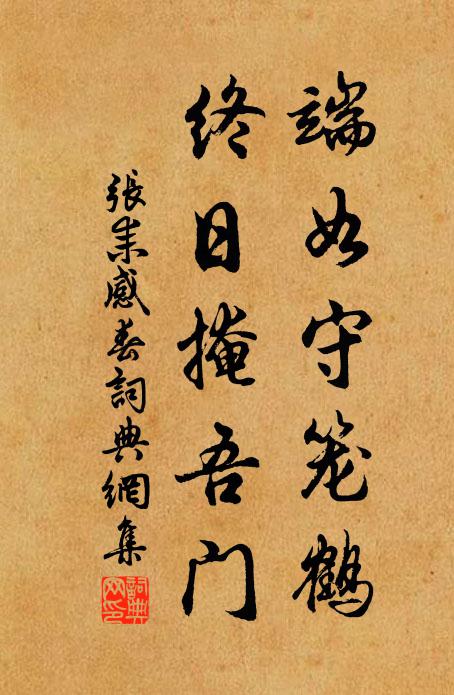 端如守笼鹤
终日掩吾门
張耒感春詞典網集
詞典网印